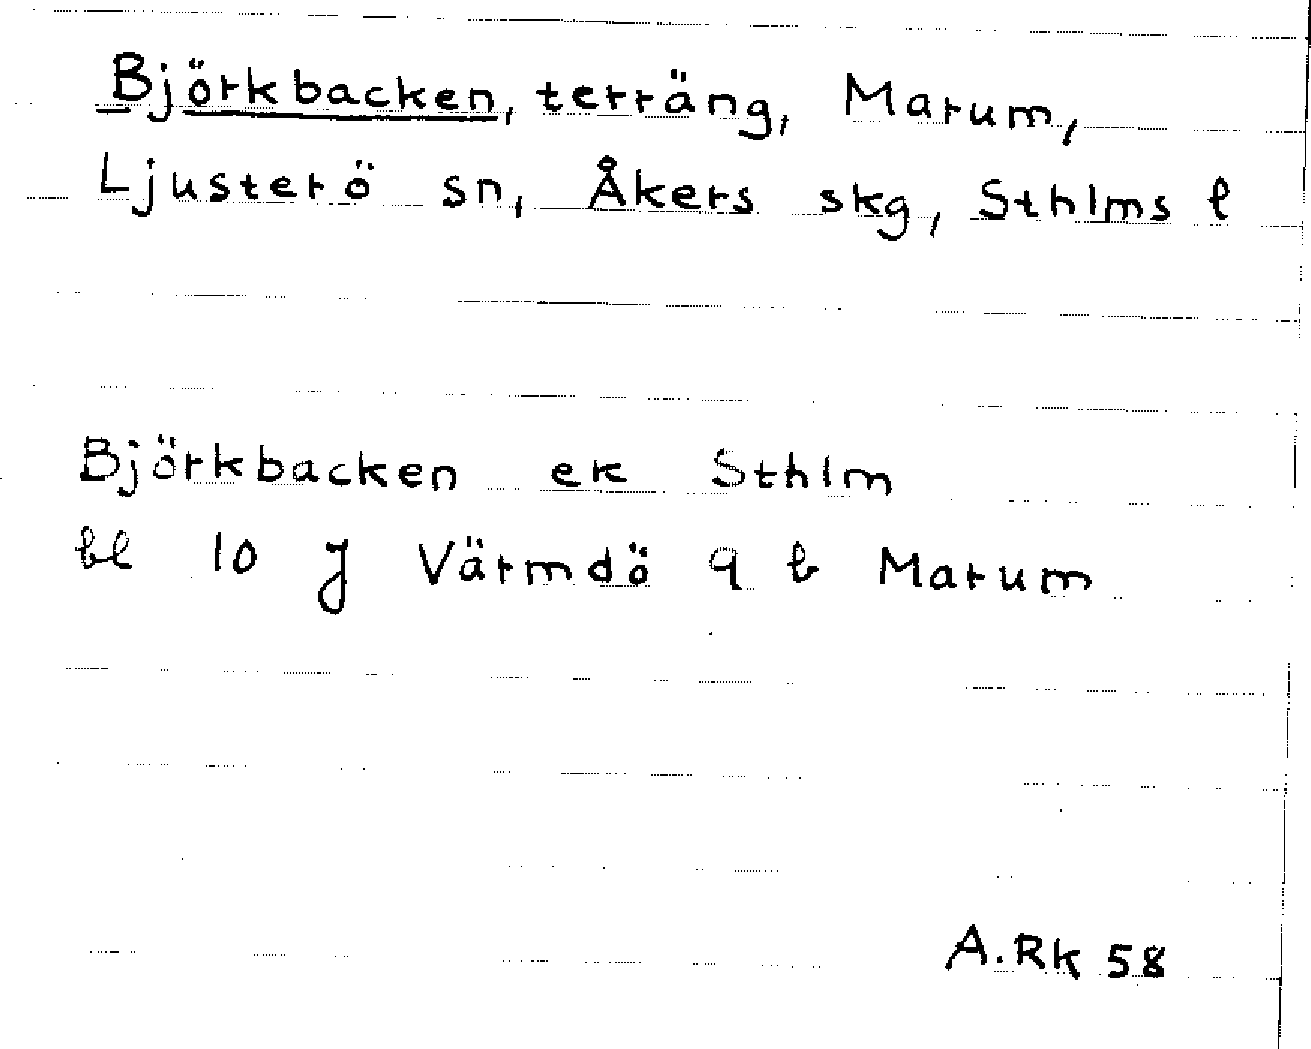 Björkbacken, terräng, Marum,
Ljusterö sn, Åkers skg, Sthlms l
Björkbacken ek Sthlm
bl 10 J Värmdö 9 b Marum
A.Rk 58